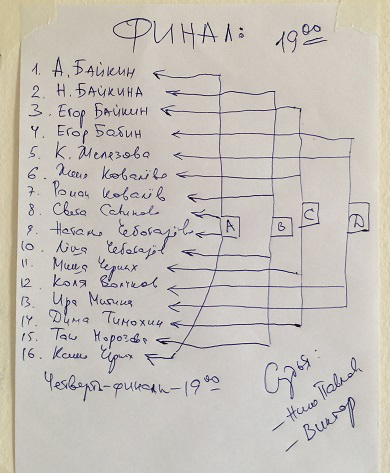 ФИНАЛ: 19⁰⁰
1. А. БАЙКИН
2. Н. БАЙКИНА
3. Егор БАЙКИН
4. Егор Бабин
5. К. Желязова
6. Женя Ковалів
7. Роман Ковалів
8. Света
9. Наталя Чеботарів
10. Ліза Чеботарів
11. Миша Черных
12. Коля Волков
13. Ира Митина
14. Дима Тимохин
15. Тая Морозова
16. Ксюша Черых
A
B
C
D
Четверть-финалы - 19⁰⁰
Судья:
- Нина
- Виктор